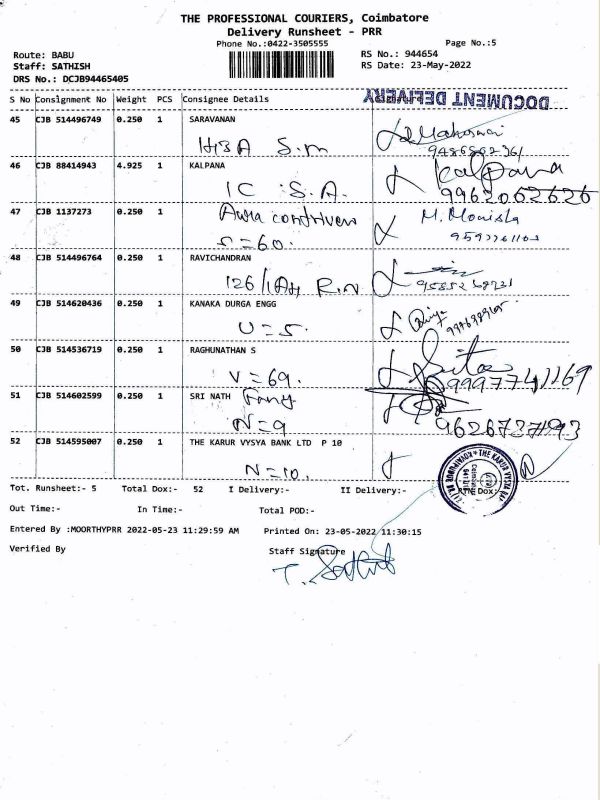 THE PROFESSIONAL COURIERS, Coimbatore
Delivery Runsheet - PRR
Phone No.:0422-3505555
Page No.:5
Route: BABU
RS No.: 944654
Staff: SATHISH
RS Date: 23-May-2022
DRS No.: DCJB94465405
DOCUMENT DELIVERY
S No Consignment No Weight PCS Consignee Details
45 CJB 514496749 0.250 1 SARAVANAN
S.m
46 CJB 88414943 4.925 1 KALPANA Kalpana
IC S.A. 9962062626
47 CJB 1137273 0.250 1 M. Monisha
S=60.
48 CJB 514496764 0.250 1 RAVICHANDRAN
R.N
49 CJB 514620436 0.250 1 KANAKA DURGA ENGG
U=5.
50 CJB 514536719 0.250 1 RAGHUNATHAN S
V=69.
51 CJB 514602599 0.250 1 SRI NATH
N=9 9626727193
52 CJB 514595007 0.250 1 THE KARUR VYSYA BANK LTD P 10
N=10.
Tot. Runsheet:- 5 Total Dox:- 52 I Delivery:- II Delivery:- Dox:-
Out Time:- In Time:- Total POD:-
Entered By :MOORTHYPRR 2022-05-23 11:29:59 AM Printed On: 23-05-2022 11:30:15
Verified By Staff Signature
T. Sathish